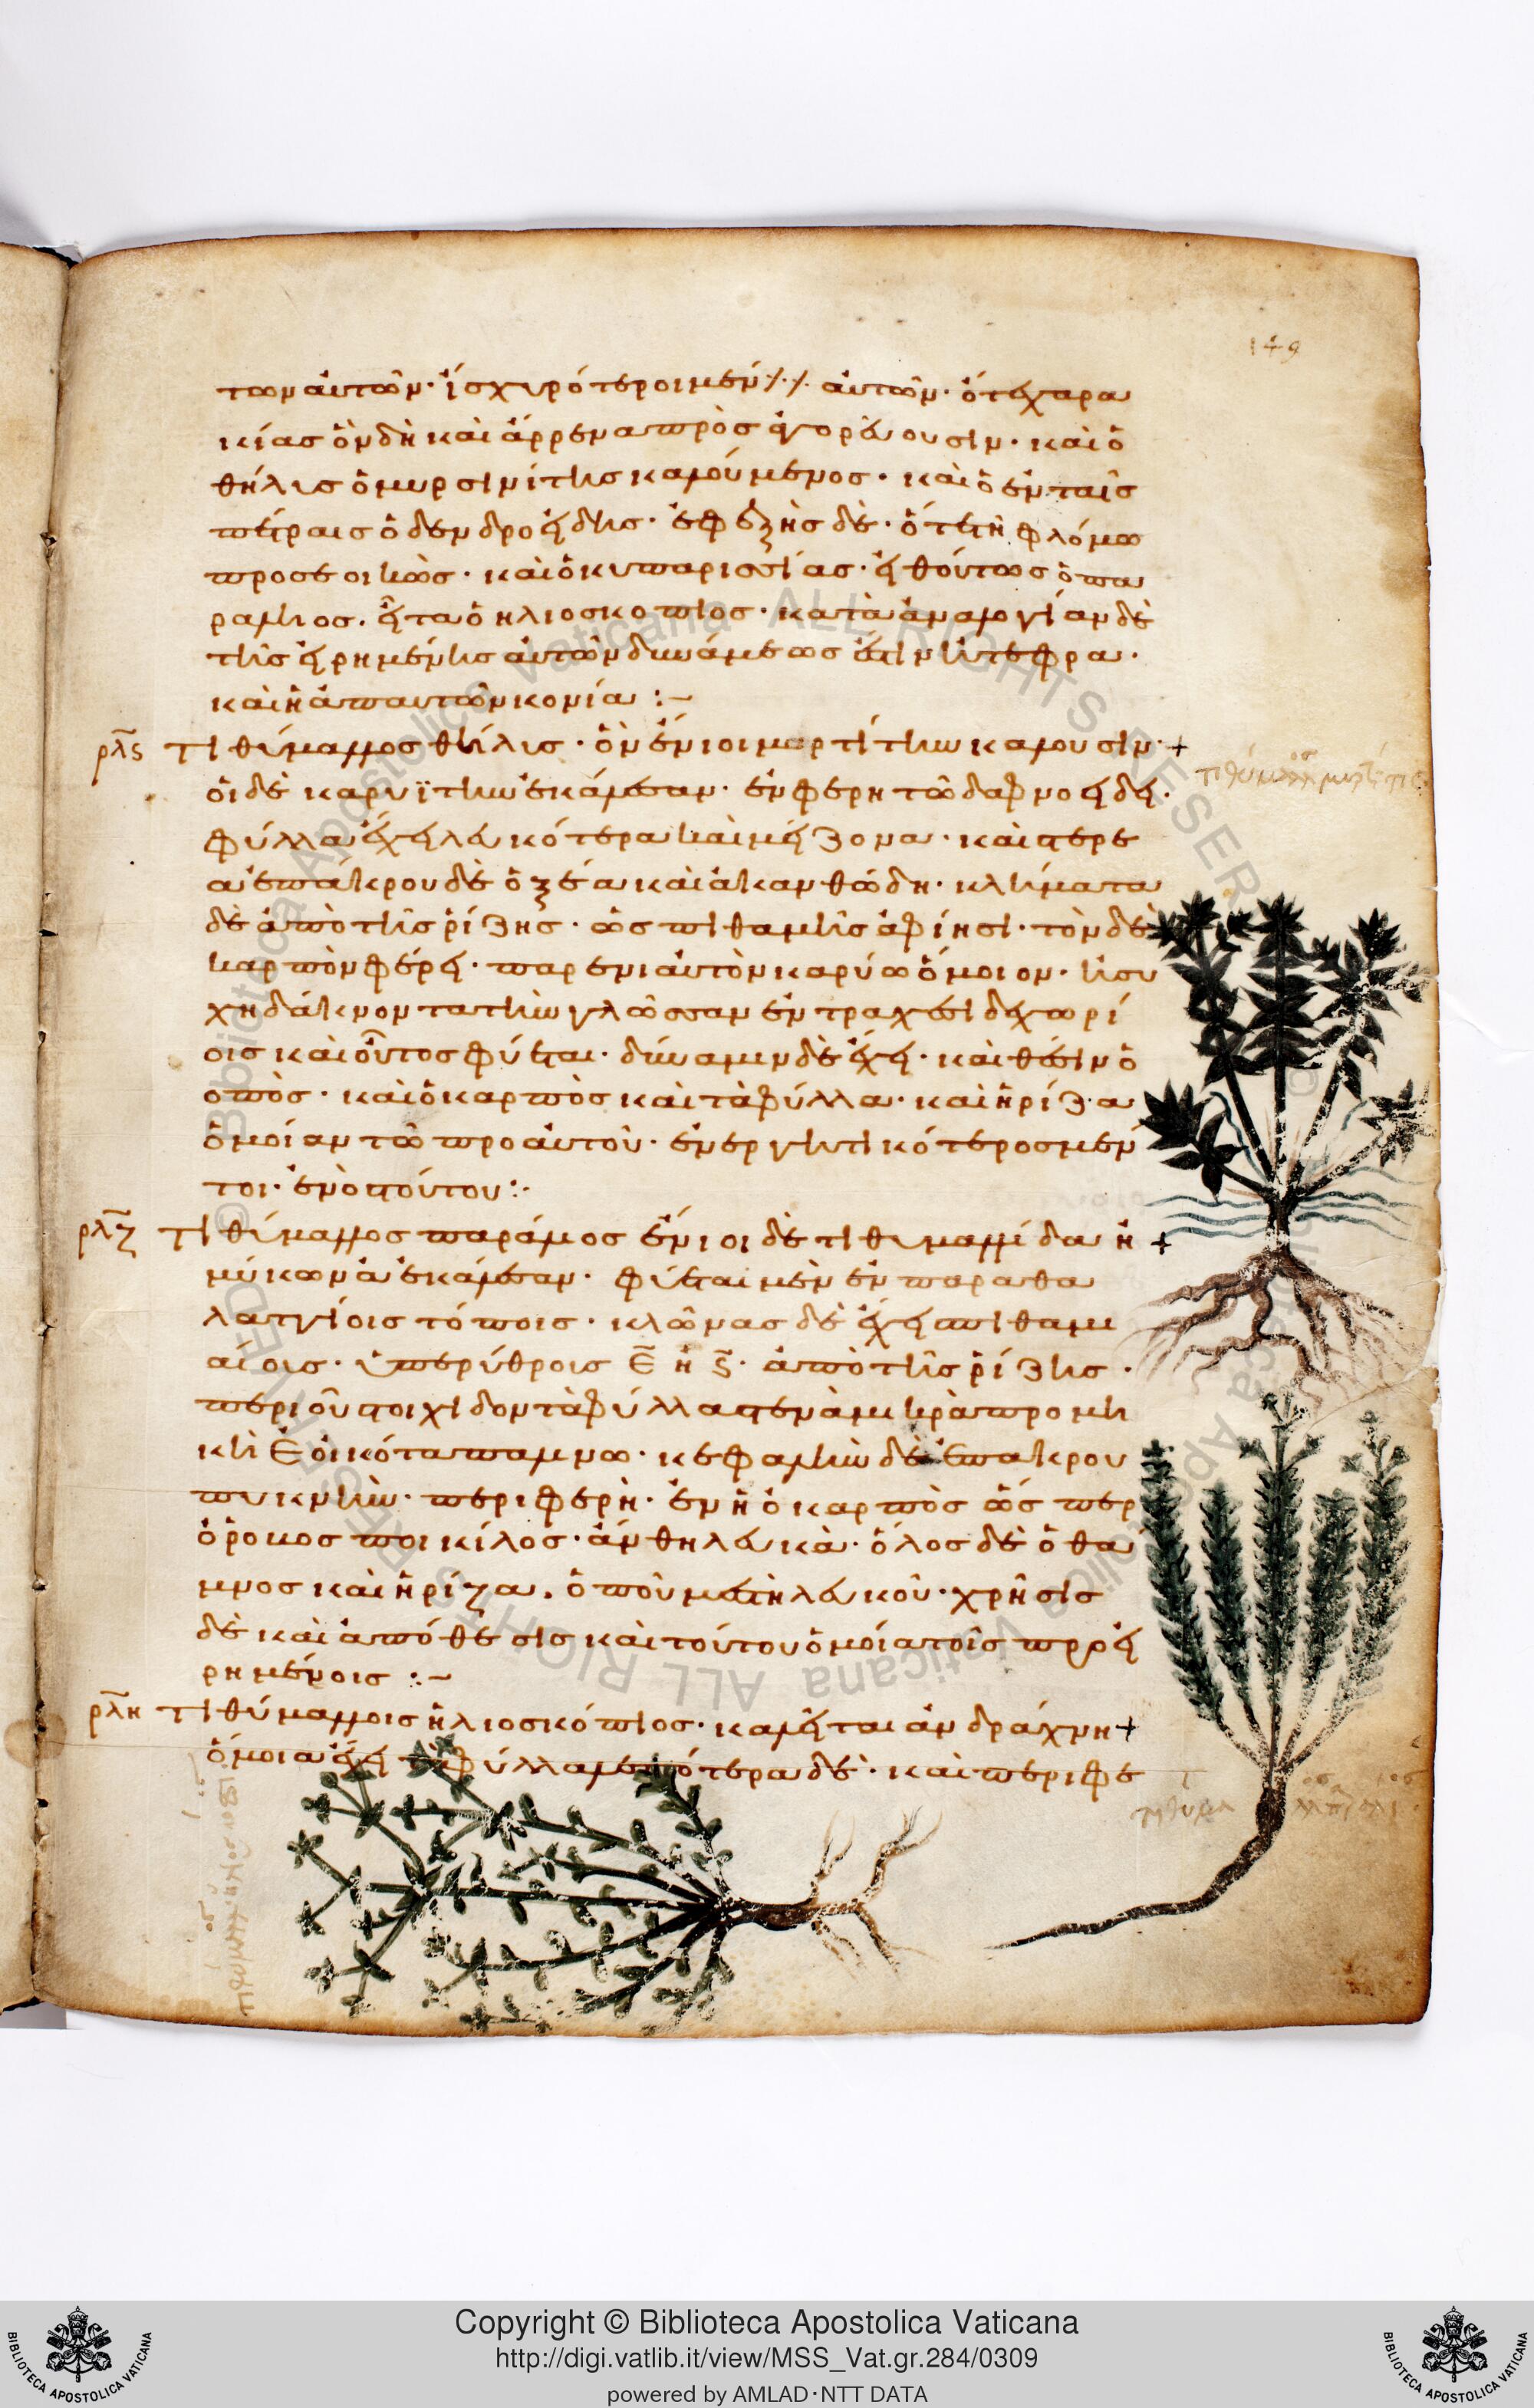 149
των αὐτῶν· ἰσχυρότεροι μὲν ⁒ αὐτῶν· ὅτε χαρα
κίας ὃν δὴ καὶ ἄρρενα προσηγορεύουσιν· καὶ ὁ
θῆλις ὁ μυρσινίτης καλούμενος· καὶ ὁ ἐν ταῖς
πέτραις ὁ δενδροείδης· ἐφεξῆς δὲ· ὅ τε τῆ φλόμω
προσεοικὼς· καὶ ὁ κυπαρισσίας· εἴθ οὕτως ὁ πα
ράλιος. εἶτα ὁ ἡλιοσκοπιος· κατὰ ἀναλογίαν δὲ
τῆς εἰρημένης αὐτῶν δυνάμεως ἐστιν ἡ τέφρα·
καὶ ἡ ἀπ αυτῶν κονία :~
ρλϛ τιθύμαλλος θῆλις· ὃν ἔνιοι μυρτίτην καλουσιν· +
οἱ δὲ καρυΐτην ἐκάλεσαν· ἐμφερὴ τῶ δαφνοειδεῖ·
φύλλα ἔχει λευκότερα καὶ μείζονα· καὶ στερε
ὰ ἐπάκρου δὲ ὀξέα καὶ ἀκανθώδη· κλήματα
δὲ ἀπὸ τῆς ρίζης· ὡς πιθαμῆς ἀφίησι· τὸν δὲ
καρπὸν φέρει· παρ ενιαυτὸν καρύω ὅμοιον· ἡσυ
χῆ δάκνοντα τὴν γλῶσσαν ἐν τραχέσι δὲ χωρί
οις καὶ οὗτος φύεται· δύναμιν δὲ ἔχει· καὶ θέσιν ὁ
οπὸς· καὶ ὁ καρπὸς καὶ τὰ φύλλα· καὶ ἡ ρίζα
ὁμοίαν τῶ προ αὐτοῦ· ἐνεργητικότερος μέν
τοι· ἐν ὀποῦ τούτου :·
ρλζ τιθύμαλλος παράλιος ἔνιοι δὲ τιθυμαλλίδα ἢ +
μύκωνα ἐκάλεσαν· φύεται μὲν ἐν παραθα
λαττίοις τόποις· κλῶνας δὲ ἔχει πιθαμι
αίοις· ὑπερύθροις ε̄ ἢ ϛ̄· ἀπὸ τῆς ρίζης·
περι οὓ στοιχιδον τὰ φύλλα στενὰ μικρὰ προμή
κη ἐοικότα παλινω· κεφαλὴν δὲ ἐπάκρου
πυκνὴν· περιφερῆ· ἐν ἧ ὁ καρπὸς ὡς περ
ὄροιος ποικίλος· ἄνθη λευκὰ· ὅλος δὲ ὁ θά
μνος καὶ ἡ ρίζα. ὀποῦ μεστὴ λευκοῦ· χρῆσις
δὲ καὶ ἀπόθεσις καὶ τούτου ὁμοία τοῖς προει
ρημένοις :~
ρλη τιθύμαλλοις ἡλιοσκόπιος· καλεῖται ἀνδράχνη +
ὅμοια ἔχει τὰ φύλλα λεπτότερα δὲ· καὶ περιφε
Copyright © Biblioteca Apostolica Vaticana
http://digi.vatlib.it/view/MSS_Vat.gr.284/0309
powered by AMLAD·NTT DATA
BIBLIOTECA APOSTOLICA VATICANA
BIBLIOTECA APOSTOLICA VATICANA